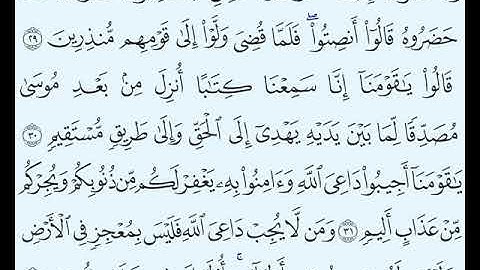 حَضَرُوهُ قَالُوٓا۟ أَنصِتُوا۟ ۖ فَلَمَّا قُضِىَ وَلَّوْا۟ إِلَىٰ قَوْمِهِم مُّنذِرِينَ ٢٩
قَالُوا۟ يَـٰقَوْمَنَآ إِنَّا سَمِعْنَا كِتَـٰبًا أُنزِلَ مِنۢ بَعْدِ مُوسَىٰ
مُصَدِّقًا لِّمَا بَيْنَ يَدَيْهِ يَهْدِىٓ إِلَى ٱلْحَقِّ وَإِلَىٰ طَرِيقٍ مُّسْتَقِيمٍ ٣٠
يَـٰقَوْمَنَآ أَجِيبُوا۟ دَاعِىَ ٱللَّهِ وَءَامِنُوا۟ بِهِۦ يَغْفِرْ لَكُم مِّن ذُنُوبِكُمْ وَيُجِرْكُم
مِّنْ عَذَابٍ أَلِيمٍ ٣١ وَمَن لَّا يُجِبْ دَاعِىَ ٱللَّهِ فَلَيْسَ بِمُعْجِزٍ فِى ٱلْأَرْضِ